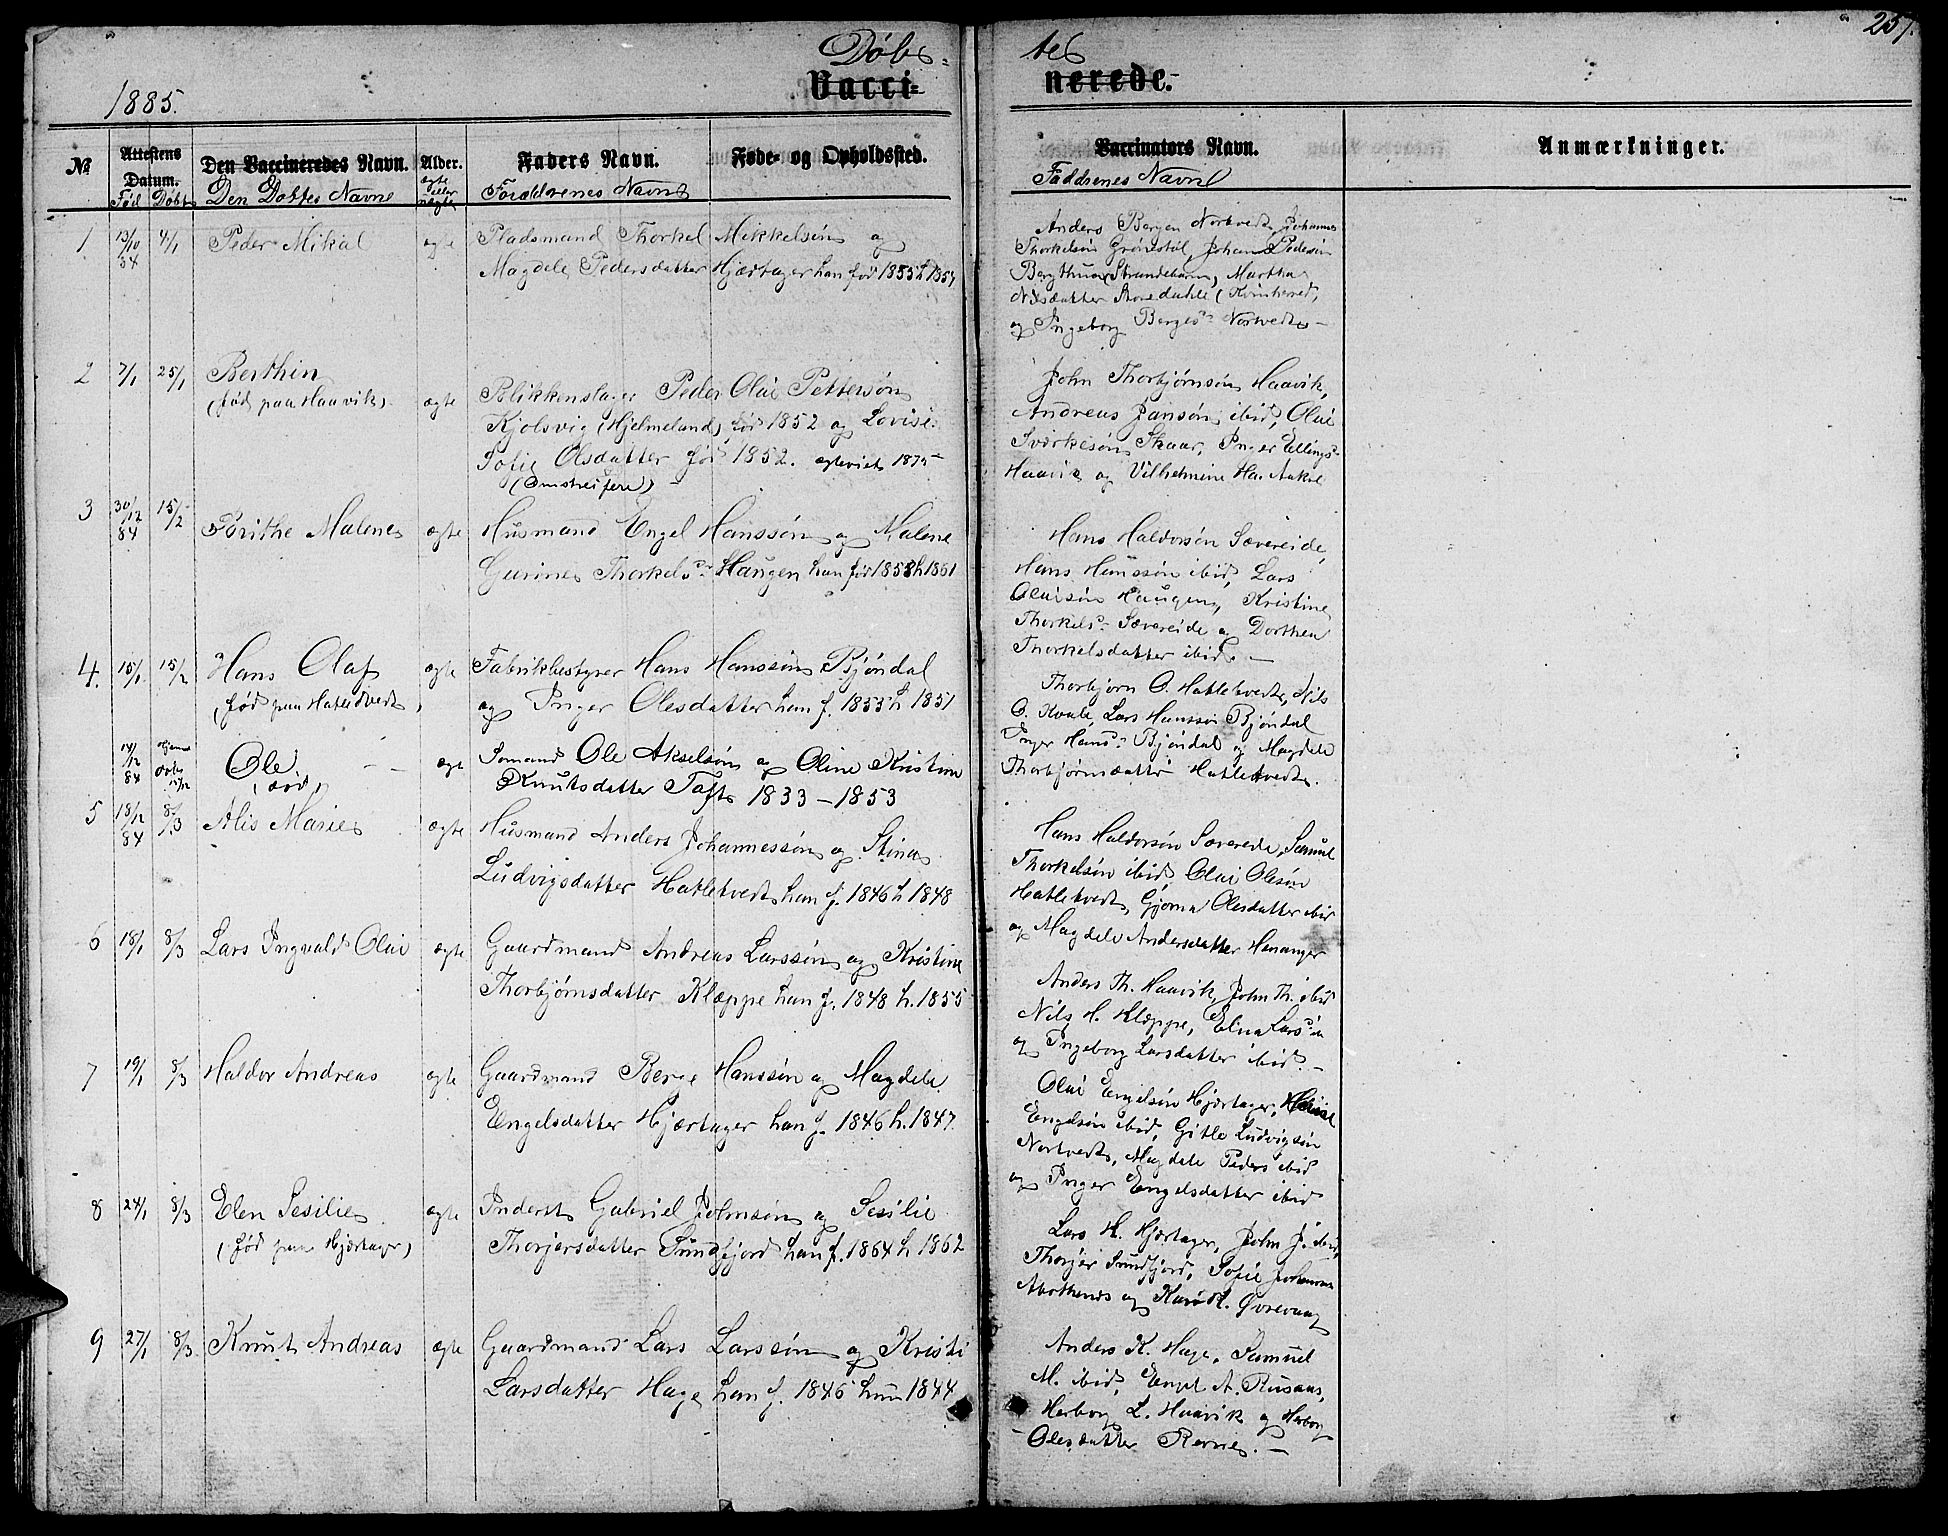 257.
Døbte
Vaccinerede.
1885.
№ Attestens Datum. Den Vaccineredes Navn. Alder. Faders Navn. Føde- og Opholdssted. Vaccinators Navn. Anmærkninger.
Fød Døbt Den Døbtes Navn ægte eller uægte Forældrenes Navne Faddrenes Navne
1 13/10 84 4/1 Peder Mikal ægte Pladsmand Thorkel Mikkelsøn og
Magdele Pedersdatter Hjærtager han fød 1855 h. 1857
Anders Bergen Nortvedt, Johannes
Thorkelsøn Grønestøl, Johan Pedersøn
Bergthun (Strandebarm), Martha
Nilsdatter Storedahle (Kvinherred,
og Ingeborg Bergesd. Nortvedt
2 7/1 25/1 Berthin
(fød paa Haavik) ægte Blikkenslager Peder Olai Pettersøn
Kjolsvig (Hjelmeland) fød 1852 og Lovise
Sofie Olsdatter fød 1852. ægteviet 1875
(Omstreifere)
John Thorbjørnsøn Haavik,
Andreas Jansøn ibid, Olai
Sværkesøn Skaar, Inger Ellings
Haavik og Vilhelmine Ha. Aakre
3 30/12 84 15/2 Børithe Malene ægte Husmand Engel Hanssøn og Malene
Gurine Thorkelsd. Haugen han fød 1858 h 1861
Hans Haldorsøn Sævereide,
Hans Hanssøn ibid, Lars
Olaisøn Haugen, Kristine
Thorkelsd. Sævereide og Dorthea
Thorkelsdatter ibid.
4. 15/1 15/2 Hans Olaf ægte Fabrikbestyrer Hans Hanssøn Bjøndal
(fød paa Hatletvedt) og Inger Olesdatter han f. 1853 h 1851
Thorbjørn O. Hatletvedt, Nils
O. Kvale, Lars Hanssøn Bjøndal
Inger Hansd. Bjøndal og Magdele
Thorbjørnsdattr Hatletvedt.
14/12 84 Hjemme døbt 15/12 Ole (død) ægte Sømand Ole Akselsøn og Oline Kristine
Knutsdatter Toft 1833 – 1853
5 18/12 84 8/3 Alis Marie ægte Husmand Anders Johannessøn og Stina
Ludvigsdatter Hatletvedt han f. 1846 h 1848
Hans Haldorsøn Sævereide, Samuel
Thorkelsøn ibid Olai Olesøn
Hatletvedt, Gjøna Olesdatter ibid
og Magdele Andersdatter Hananger
6 18/1 8/3 Lars Ingvald Olai ægte Gaardmand Andreas Larssøn og Kristine
Thorbjørnsdatter Kleppe han f. 1848 h. 1855
Anders Th. Haavik, John Th. ibid
Nils H. Kleppe, Elna Larsd.
og Ingeborg Larsdatter ibid.
7 19/1 8/3 Haldor Andreas ægte Gaardmand Berge Hanssøn og Magdele
Engelsdatter Hjærtager han f. 1846 h. 1847.
Olai Engelsøn Hjærtager,
Engelsøn ibid, Gitle Ludvigsøn
Nortvedt, Magdele Peders ibid
og Inger Engelsdatter ibid
8 24/1 8/3 Elen Sesilie ægte Inderst Gabriel Johnsøn og Sesilie
(fød paa Hjærtager) Thorjersdatter Sundfjord han f. 1864 h 1862
Lars H. Hjærtager, John J. ibid,
Thorjer Sundfjord, Sofie Johannes
og Kari K. Øvrevaag
9 27/1 8/3 Knut Andreas ægte Gaardmand Lars Larssøn og Kristi
Larsdatter Hage han f. 1846 hun 1844
Anders K. Hage, Samuel
M. ibid, Engel A. Rusaas,
Herborg L. Haavik og Herborg
Olesdatter Revne.